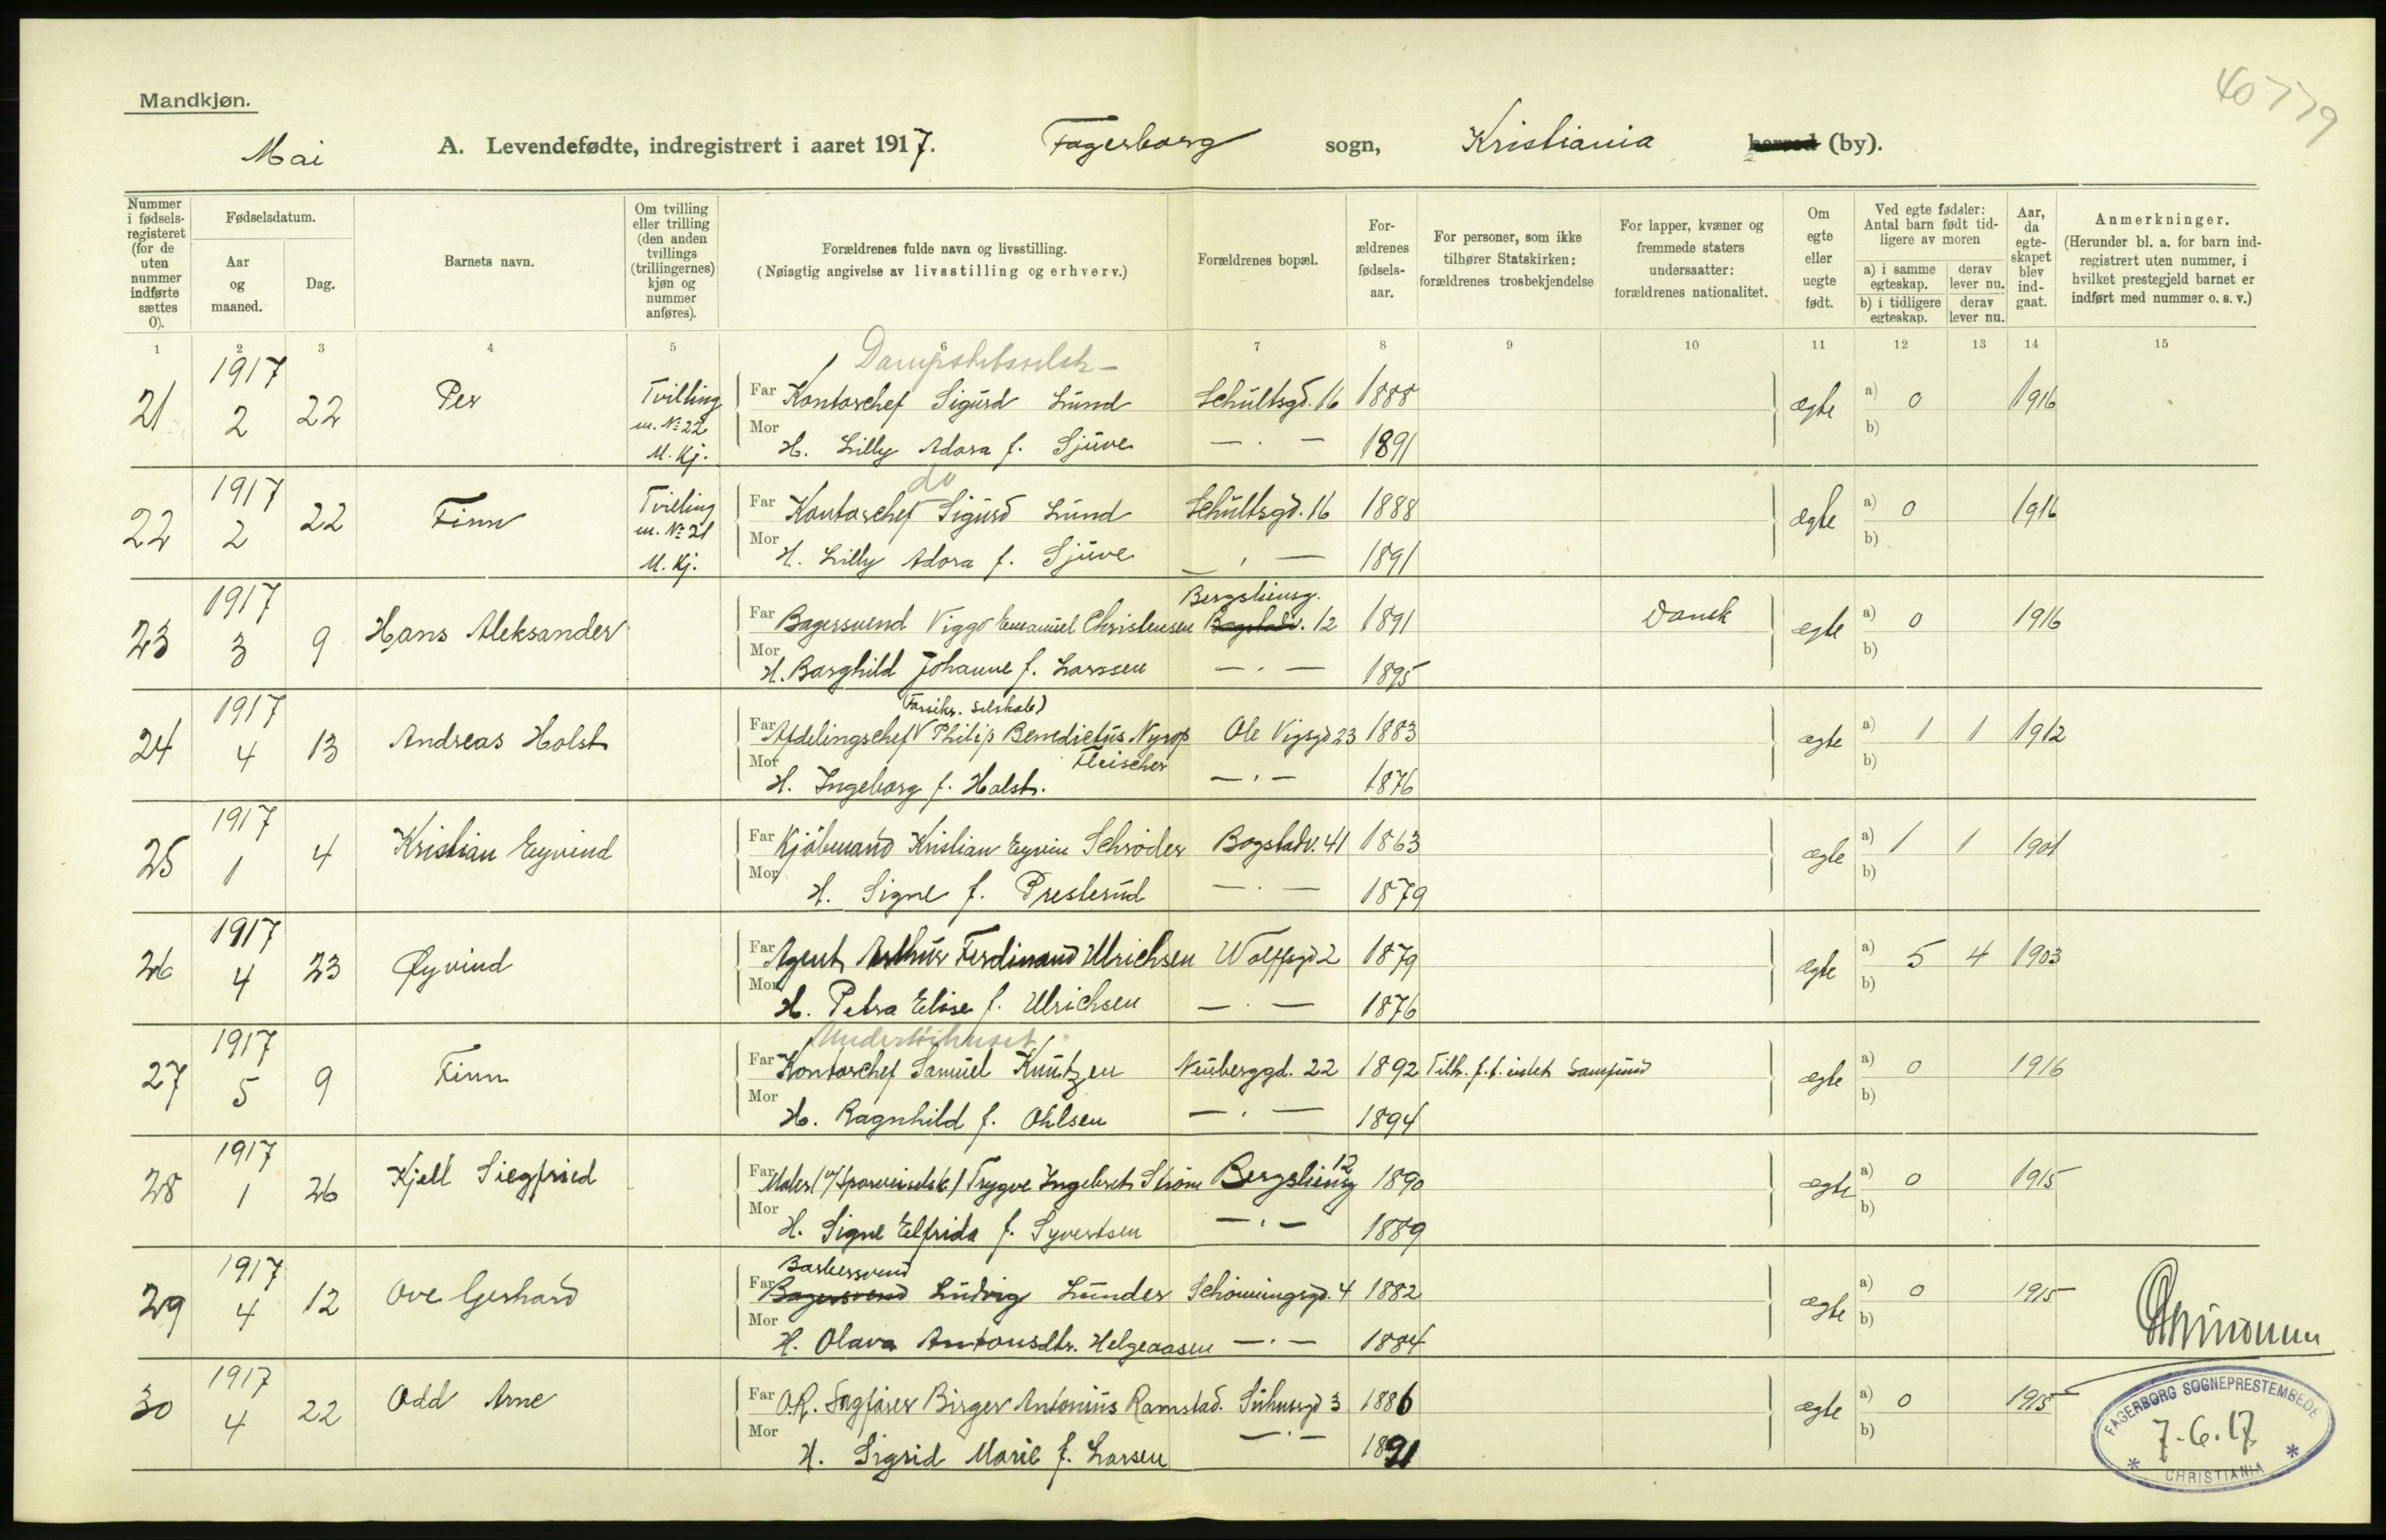 40779
Mandkjøn.
Mai A. Levendefødte, indregistrert i aaret 1917. Fagerborg sogn, Kristiania herred (by).
Nummer i fødselsregisteret (for de uten nummer indførte sættes 0).
Fødselsdatum.
Aar og maaned.
Dag.
Barnets navn.
Om tvilling eller trilling (den anden tvillings (trillingernes) kjøn og nummer anføres).
Forældrenes fulde navn og livsstilling.
(Nøiagtig angivelse av livsstilling og erhverv.)
Forældrenes bopæl.
Forældrenes fødselsaar.
For personer, som ikke tilhører Statskirken: forældrenes trosbekjendelse
For lapper, kvæner og fremmede staters undersaatter: forældrenes nationalitet.
Om egte eller uegte født.
Ved egte fødsler: Antal barn født tidligere av moren
a) i samme egteskap.
derav lever nu.
b) i tidligere egteskap.
derav lever nu.
Aar, da egteskapet blev indgaat.
Anmerkninger.
(Herunder bl. a. for barn indregistrert uten nummer, i hvilket prestegjeld barnet er indført med nummer o. s. v.)
1 2 3 4 5 6 7 8 9 10 11 12 13 14 15
Dampskibsselsk
21 1917 2 22 Per Tvilling m. No 22 M. Kj. Far Kontorchef Sigurd Lund Schultsgd. 16 1888 ægte a) 0 1916
Mor H. Lilly Adora f. Sjuve — . — 1891 b)
do
22 1917 2 22 Finn Tvilling m. No 21 M. Kj. Far Kontorchef Sigurd Lund Schultsgd. 16 1888 ægte a) 0 1916
Mor H. Lilly Adora f. Sjuve — . — 1891 b)
Bergsliensg.
23 1917 3 9 Hans Aleksander Far Bagersvend Viggo Emanuel Christensen Bogstadv. 12 1891 Dansk ægte a) 0 1916
Mor H. Borghild Johanne f. Larssen — . — 1895 b)
(Forsikr. selskab)
24 1917 4 13 Andreas Holst Far Afdelingschef Philip Benedictus Nyrop Ole Vigsgd 23 1883 ægte a) 1 1 1912
Fleischer
Mor H. Ingeborg f. Holst. — . — 1876 b)
25 1917 1 4 Kristian Eyvind Far Kjøbmand Kristian Eyvin Schrøder Bogstadv. 41 1863 ægte a) 1 1 1901
Mor H. Signe f. Presterud — . — 1879 b)
26 1917 4 23 Øyvind Far Agent Arthur Ferdinand Ulrichsen Wolffsgd 2 1879 ægte a) 5 4 1903
Mor H. Petra Elise f. Ulrichsen — . — 1876 b)
27 1917 5 9 Finn Far Kontorchef Samuel Knutzen Neuberggd. 22 1892 Tilh. f. t. intet Samfund ægte a) 0 1916
Mor H. Ragnhild f. Ohlsen — . — 1894 b)
28 1917 1 26 Kjell Siegfried Far Maler (v/Sporveiselsk.) Trygve Ingebret Strøm Bergsliensg 12 1890 ægte a) 0 1915
Mor H. Signe Elfrida f. Syvertsen — . — 1889 b)
Barbersvend
29 1917 4 12 Ove Gerhard Far Bagersvend Ludvig Lunder Schønningsgd. 4 1882 ægte a) 0 1915
Mor H. Olava Antonsdtr. Helgeaasen — . — 1884 b)
30 1917 4 22 Odd Arne Far O.R. Sagfører Birger Antonius Ramstad. Suhmsgd 3 1886 ægte a) 0 1915
Mor H. Sigrid Marie f. Larsen — . — 1891 b)
FAGERBORG SOGNEPRESTEMBEDE
7-6.17
* CHRISTIANIA *